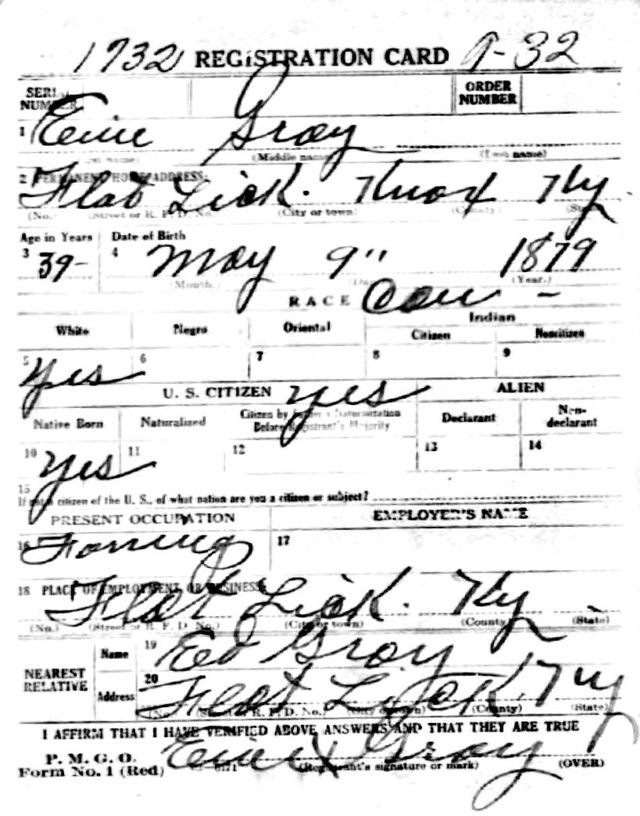 1732 REGISTRATION CARD A-32
SERIAL NUMBER ORDER NUMBER
1 Gray
(Middle name) (Last name)
2 PERMANENT HOME ADDRESS:
Flat Lick. Knox Ky.
(No.) (Street or R. F. D. No.) (City or town) (County) (State)
Age in Years Date of Birth
3 39- 4 May 9" 1879
(Month.) (Day.) (Year.)
RACE Cau -
Indian
White Negro Oriental Citizen Noncitizen
5 6 7 8 9
Yes
U. S. CITIZEN yes ALIEN
Native Born Naturalized Citizen by Father's Naturalization Before Registrant's Majority Declarant Non-declarant
10 11 12 13 14
Yes
15
If not a citizen of the U. S., of what nation are you a citizen or subject?
PRESENT OCCUPATION EMPLOYER'S NAME
16 Farming 17
18 PLACE OF EMPLOYMENT OR BUSINESS:
Flat Lick. Ky.
(No.) (Street or R. F. D. No.) (City or town) (County) (State)
NEAREST RELATIVE
Name 19 Ed Gray
Address 20 Flat Lick, Ky
(No.) (Street or R. F. D. No.) (City or town) (County) (State)
I AFFIRM THAT I HAVE VERIFIED ABOVE ANSWERS AND THAT THEY ARE TRUE
P. M. G. O.
Form No. 1 (Red) x Gray
(Registrant's signature or mark) (OVER)